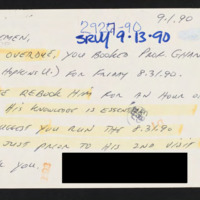 9-1-90
2927-90
SRW 9-13-90
EMEN,
OVERDUE, YOU BOOKED PROF. GHAN
(HOPKINS U.) FOR FRIDAY 8.31.90.
E REBOOK HIM FOR AN HOUR
HIS KNOWLEDGE IS ESSEN
GGEST YOU RUN THE 8.31.90
JUST PRIOR TO HIS 2ND VISIT
YOU.